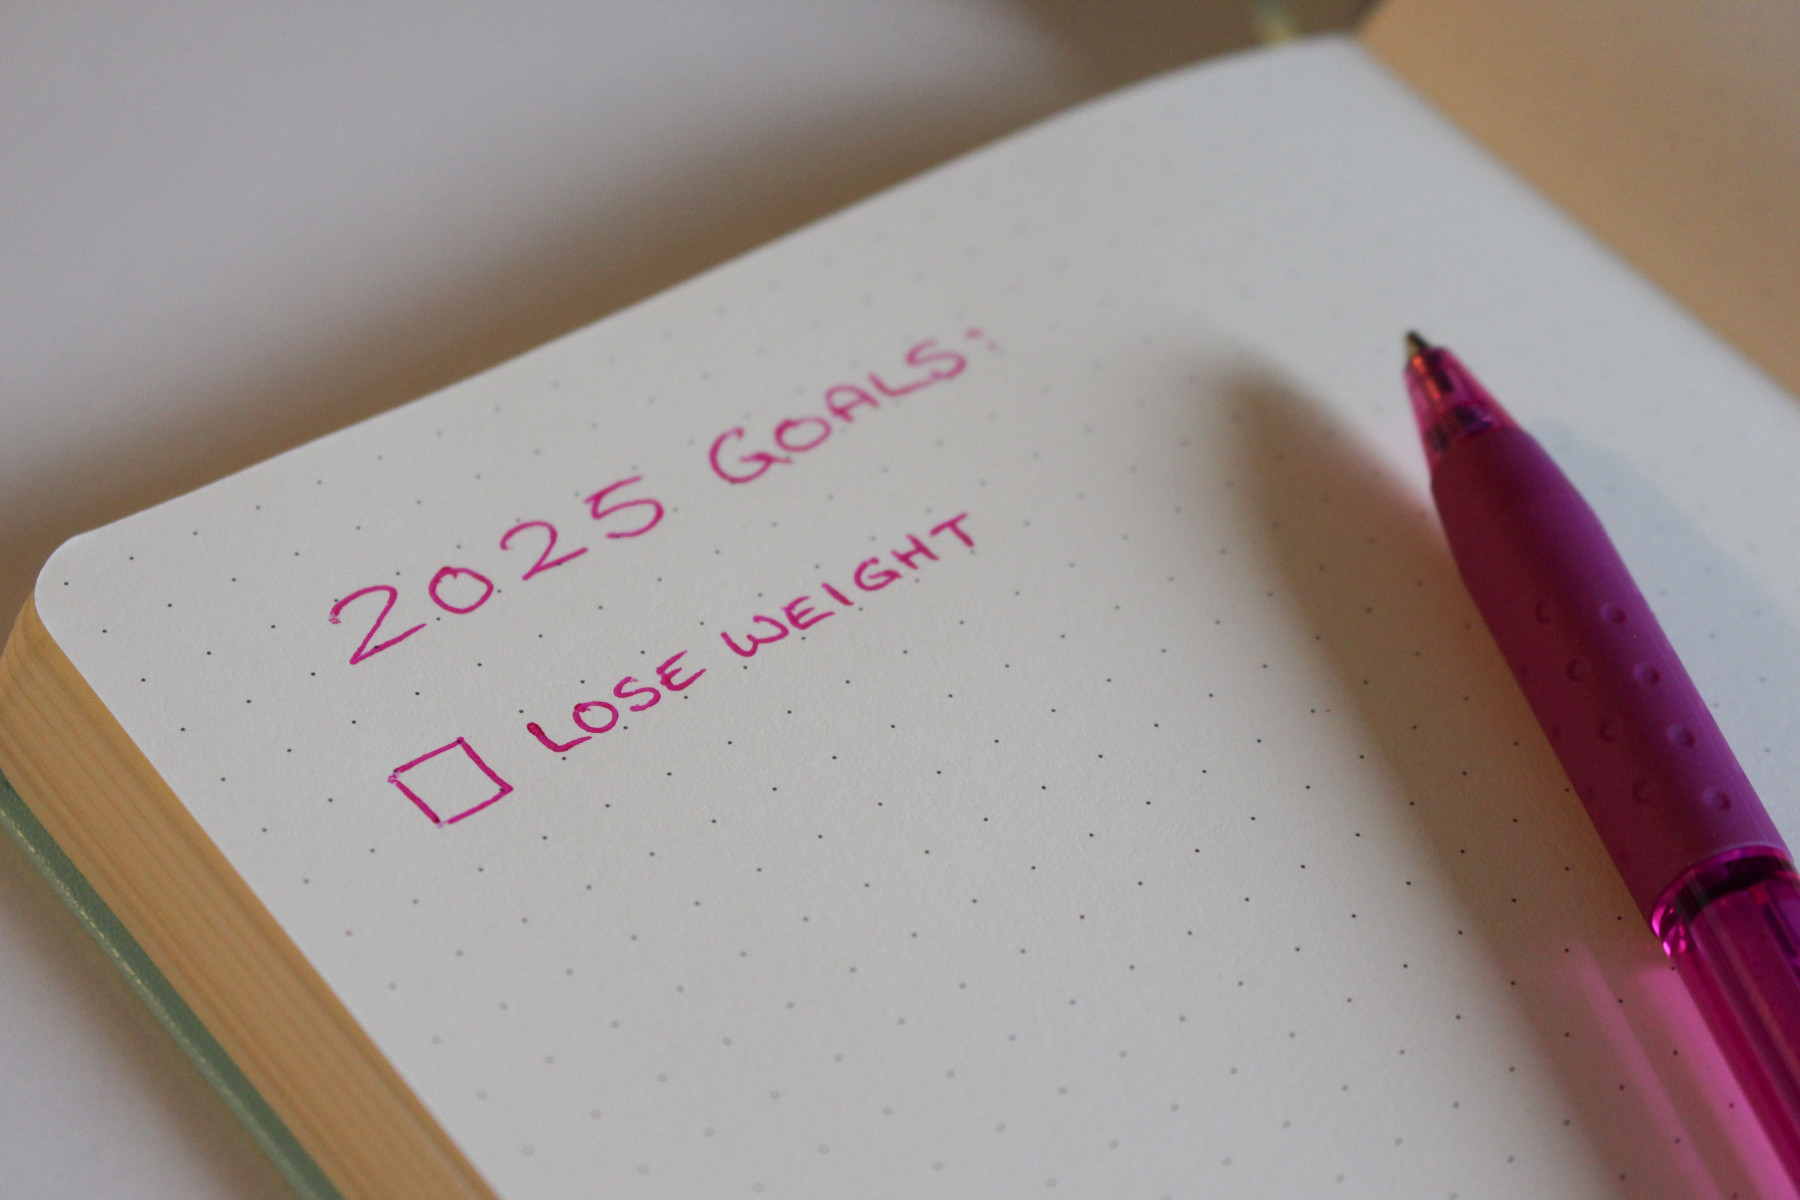 2025 GOALS:
LOSE WEIGHT